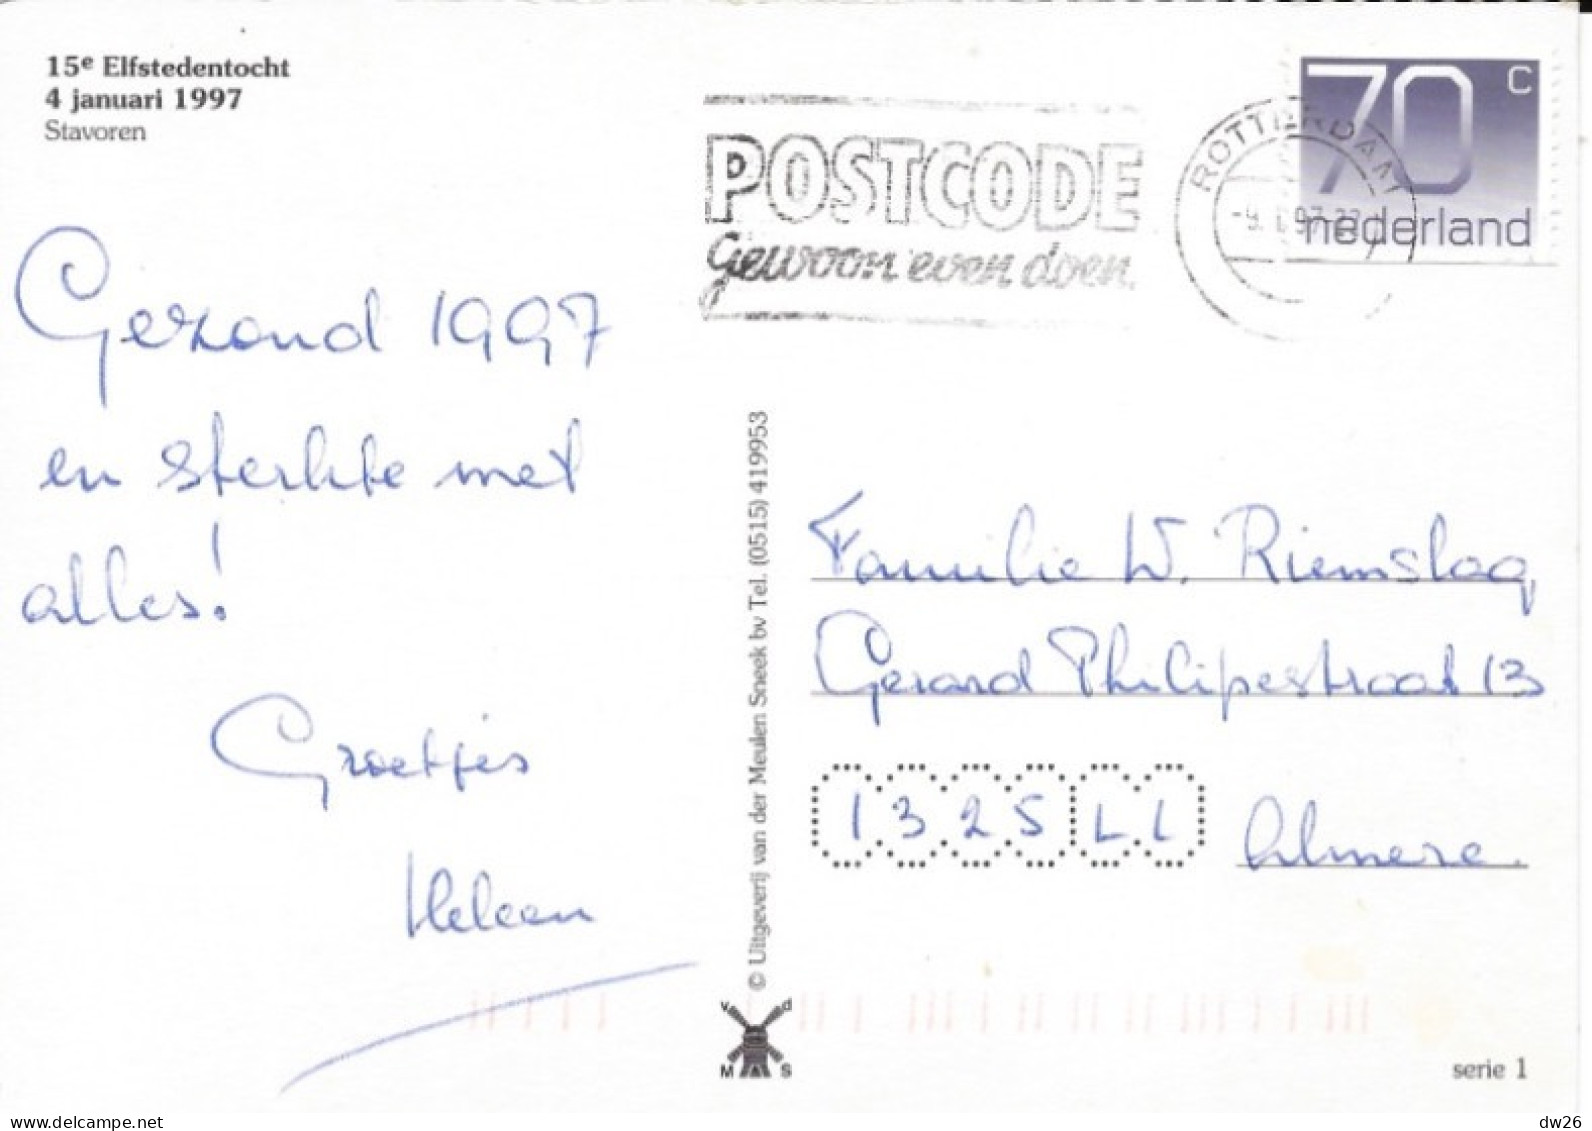 15e Elfstedentocht
4 januari 1997
Stavoren
POSTCODE
Gewoon even doen.
ROTTERDAM
-9.I.97
70 C
nederland
Gezond 1997
en sterkte met
alles!
Groetjes
Heleen
© Uitgeverij van der Meulen Sneek bv Tel. (0515) 419953
Familie W. Riemslag
Gerard Philipestraat 13
1325 LL Almere.
v d
M S
serie 1
dw26